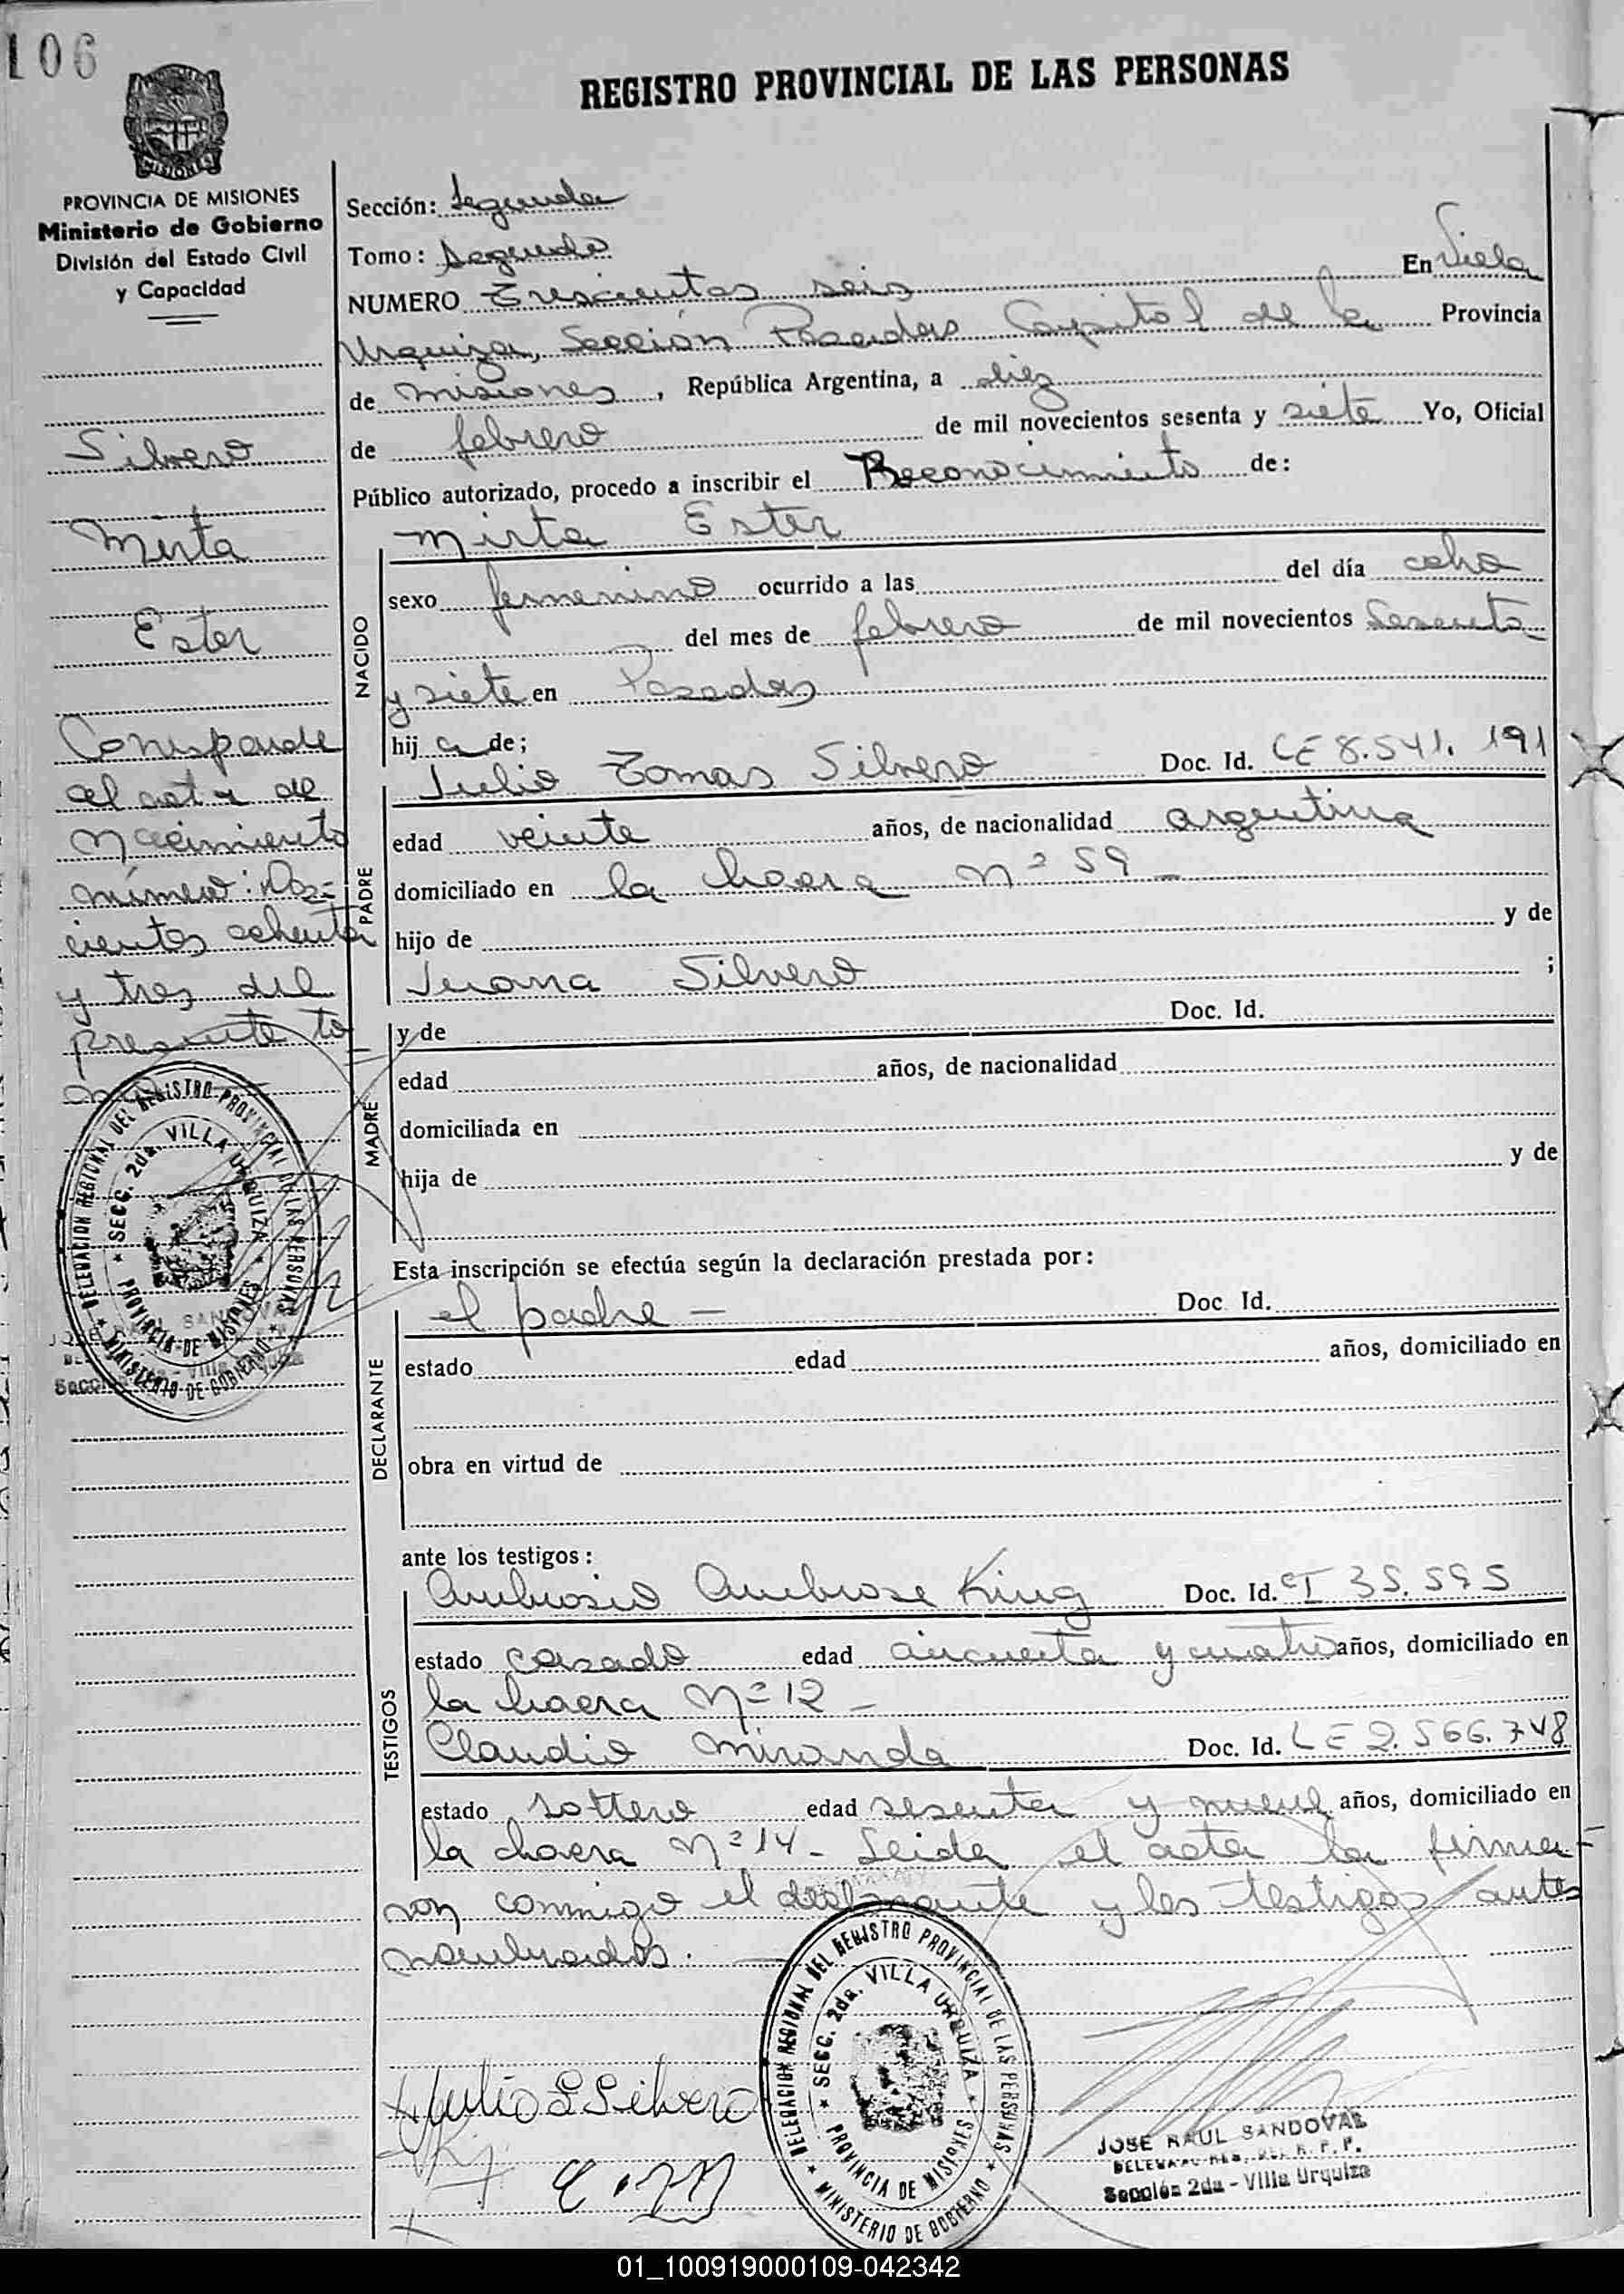 106
REGISTRO PROVINCIAL DE LAS PERSONAS
MISIONES
PROVINCIA DE MISIONES
Ministerio de Gobierno
División del Estado Civil
y Capacidad
Silvero
Mirta
Ester
Corresponde
al acta de
nacimiento
número: Dos-
cientos ochenta
y tres del
presente to
mo
DELEGACION REGIONAL DEL REGISTRO PROVINCIAL DE LAS PERSONAS
SECC. 2da. VILLA URQUIZA
PROVINCIA DE MISIONES
MINISTERIO DE GOBIERNO
Sección: Segunda
Tomo: Segundo
NUMERO Trescientos seis En Villa
Urquiza, Sección Posadas Capital de la Provincia
de Misiones, República Argentina, a diez
de febrero de mil novecientos sesenta y siete Yo, Oficial
Público autorizado, procedo a inscribir el Reconocimiento de:
Mirta Ester
NACIDO
sexo femenino ocurrido a las del día ocho
del mes de febrero de mil novecientos sesenta
y siete en Posadas
hija de;
Julio Tomas Silvero Doc. Id. LE 8.541.191
PADRE
edad veinte años, de nacionalidad argentina
domiciliado en la chacra Nº 59 -
hijo de y de
Juana Silvero ;
y de Doc. Id.
MADRE
edad años, de nacionalidad
domiciliada en
hija de y de
Esta inscripción se efectúa según la declaración prestada por:
el padre - Doc. Id.
DECLARANTE
estado edad años, domiciliado en
obra en virtud de
ante los testigos:
Ambrosio Ambrose King Doc. Id. CI 35.595
TESTIGOS
estado casado edad cincuenta y cuatro años, domiciliado en
la chacra Nº 12 -
Claudio Miranda Doc. Id. LE 2.566.748
estado soltero edad sesenta y nueve años, domiciliado en
la chacra Nº 14 - Leida el acta la firma-
ron conmigo el declarante y los testigos antes
nombrados. -
DELEGACION REGIONAL DEL REGISTRO PROVINCIAL DE LAS PERSONAS
SECC. 2da. VILLA URQUIZA
PROVINCIA DE MISIONES
MINISTERIO DE GOBIERNO
Julio Silvero
JOSE RAUL SANDOVAL
DELEGADO REG. DEL R. P. P.
Sección 2da - Villa Urquiza
01_100919000109-042342